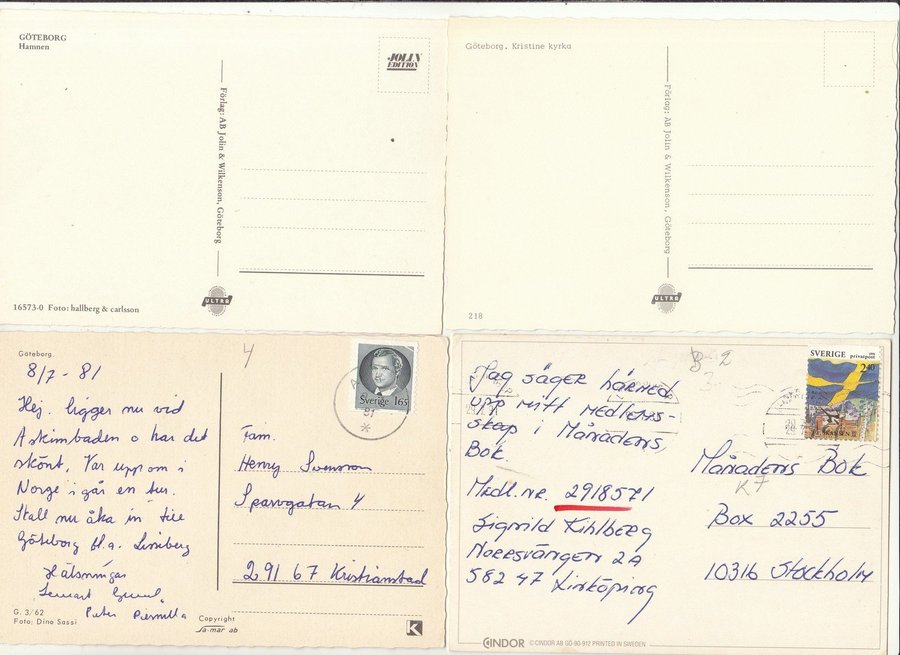 GÖTEBORG
Hamnen
JOLIN
EDITION
Förlag: AB Jolin & Wilkenson, Göteborg
ULTRA
16573-0 Foto: hallberg & carlsson
Göteborg. Kristine kyrka
Förlag: AB Jolin & Wilkenson, Göteborg
ULTRA
218
Göteborg.
8/7 - 81
Hej. ligger nu vid
Askimbaden o har det
skönt, Var upp om i
Norge i går en tur.
Skall nu åka in till
Göteborg bl.a. Liseberg
Hälsningar
Lennart
Peter Pernilla
G. 3/62
Foto: Dino Sassi
Copyright
sa-mar ab
K
4
Sverige 165
81
Fam.
Henry Svensson
Sparvgatan 4
291 67 Kristianstad
Jag säger härmed
upp mitt medlems-
skap i Månadens
Bok.
Medl.nr. 2918571
Sigvild Kihlberg
Norrsvängen 2A
582 47 Linköping
CINDOR
© CINDOR AB GÖ-90-912 PRINTED IN SWEDEN
2
SVERIGE privatpost
2,40
Månadens Bok
K7
Box 2255
10316 Stockholm